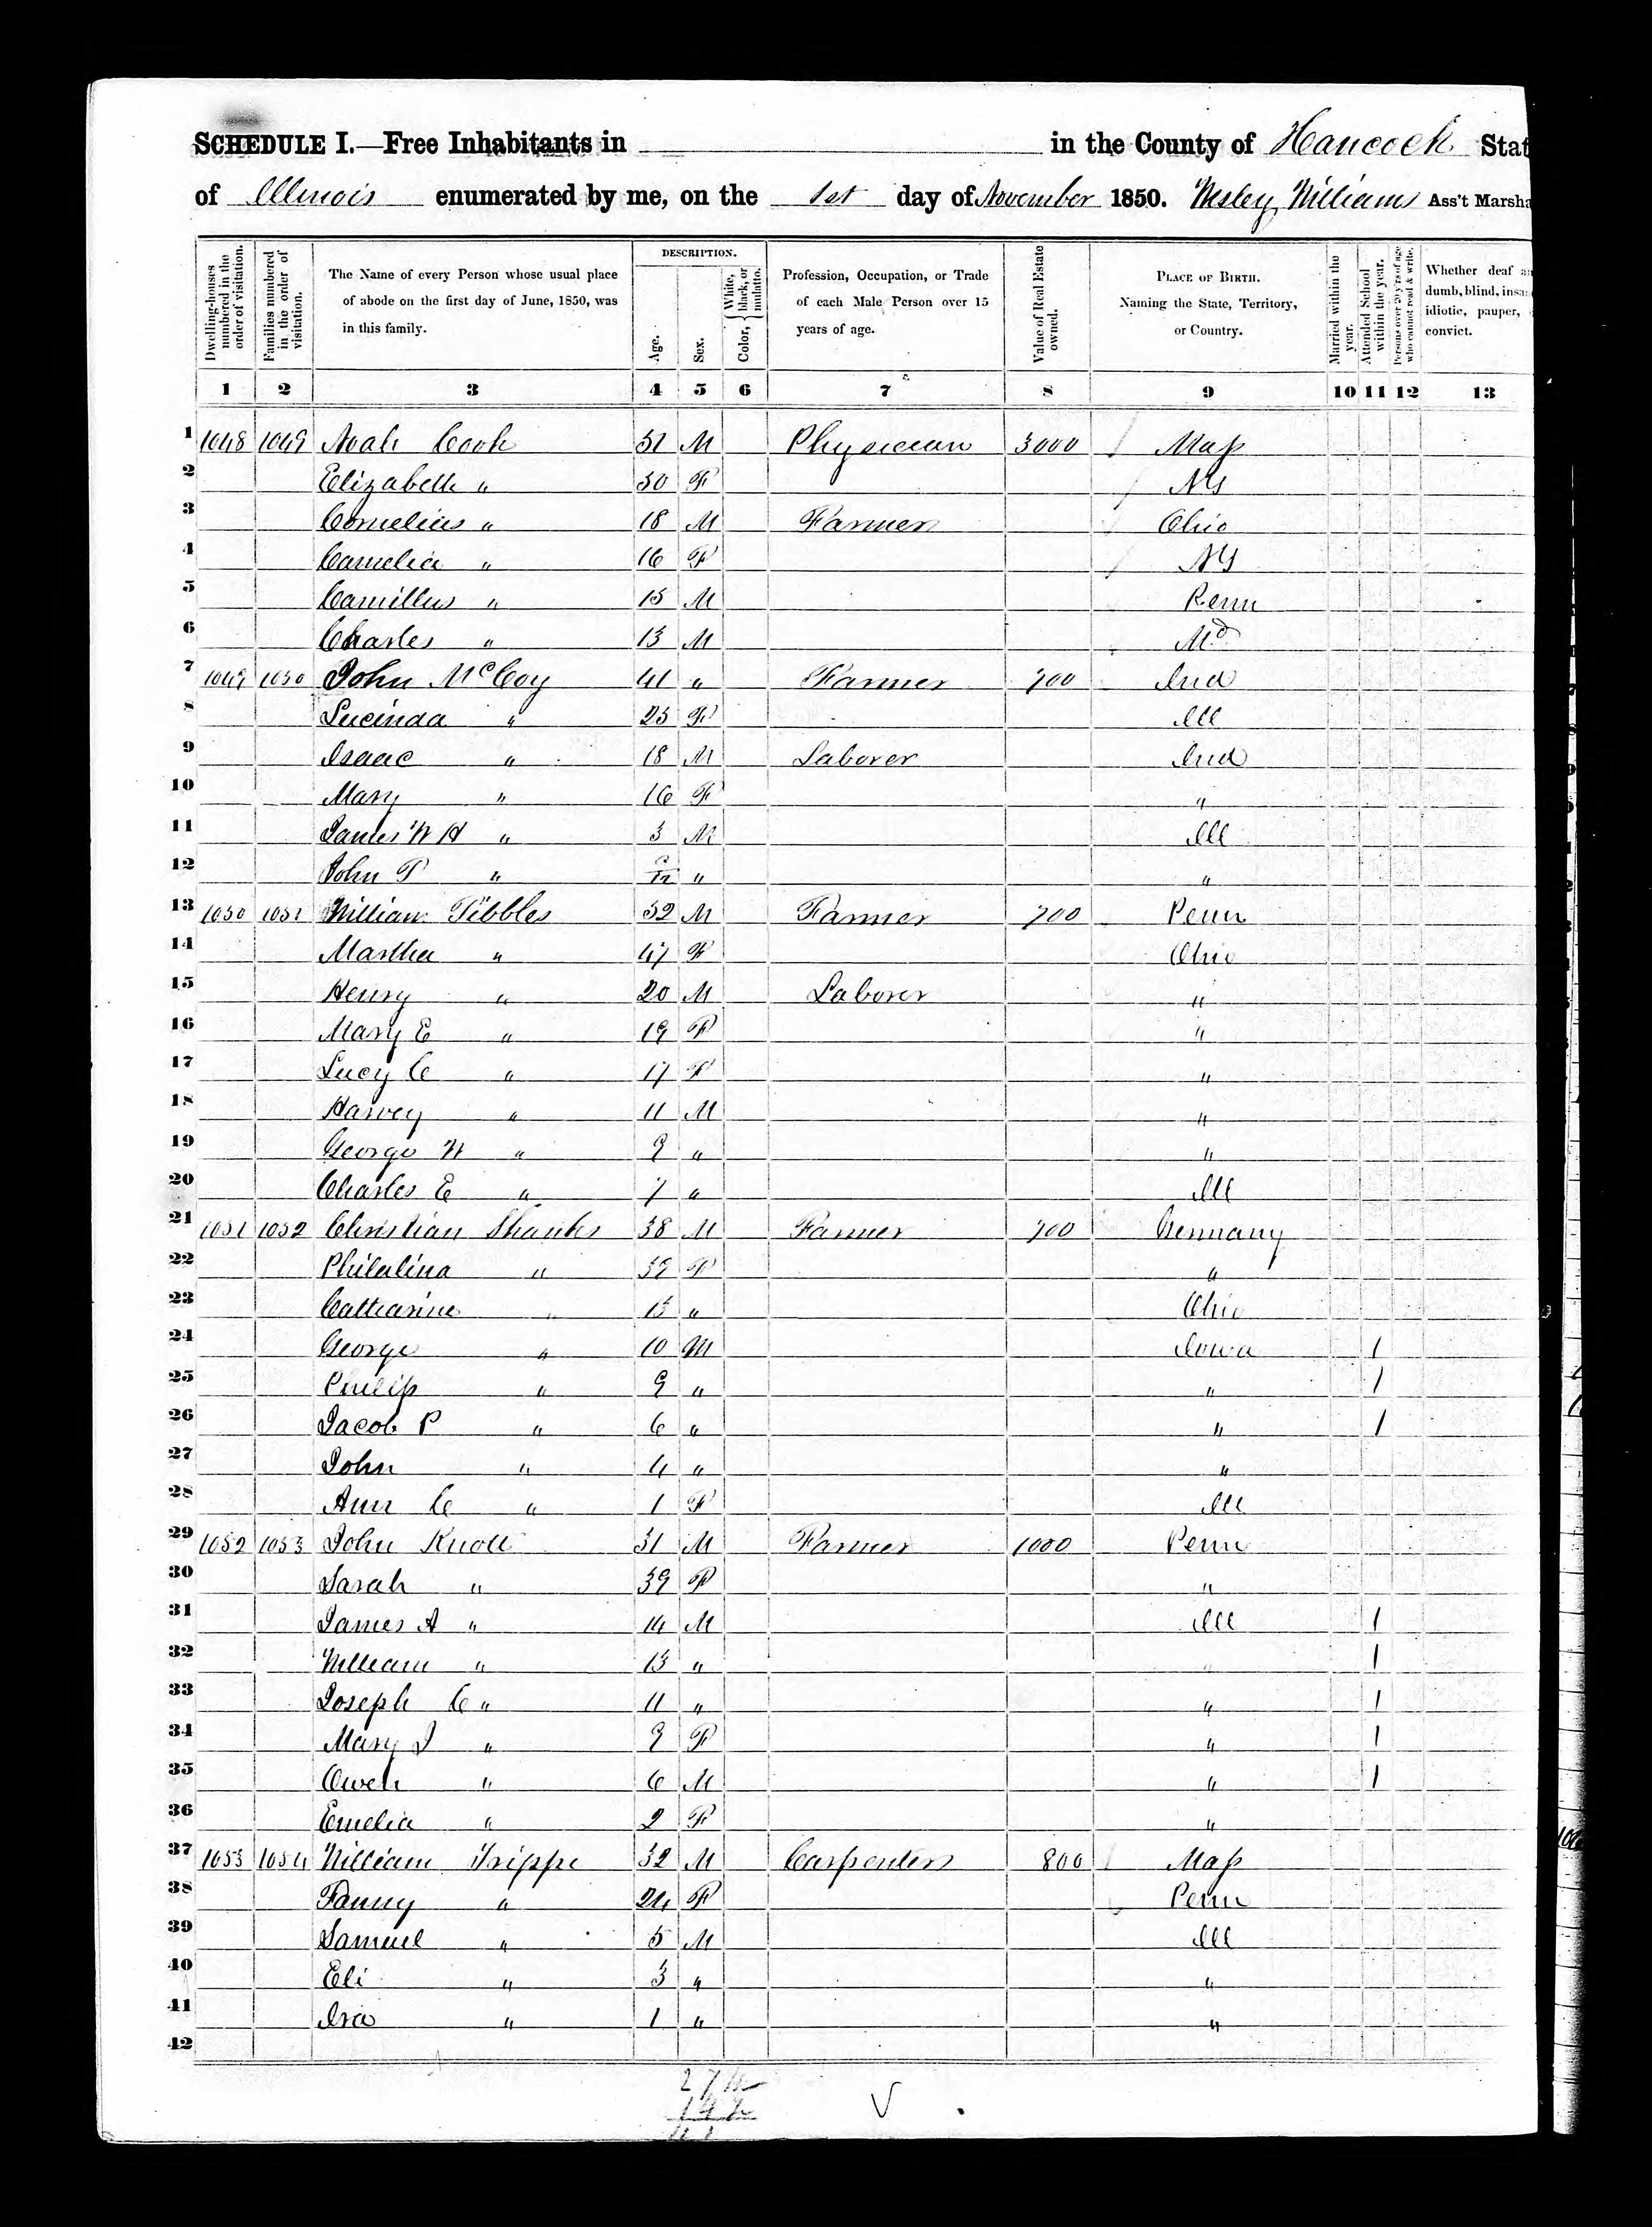 SCHEDULE I.—Free Inhabitants in in the County of Hancock Stat
of Illinois enumerated by me, on the 1st day of November 1850. Wesley Williams Ass't Marsha
Dwelling-houses numbered in the order of visitation.
Families numbered in the order of visitation.
The Name of every Person whose usual place of abode on the first day of June, 1850, was in this family.
DESCRIPTION.
Age.
Sex.
Color, { White, black, or mulatto.
Profession, Occupation, or Trade of each Male Person over 15 years of age.
Value of Real Estate owned.
PLACE OF BIRTH. Naming the State, Territory, or Country.
Married within the year.
Attended School within the year.
Persons over 20 y'rs of age who cannot read & write.
Whether deaf an dumb, blind, insa idiotic, pauper, convict.
1 2 3 4 5 6 7 8 9 10 11 12 13
1 1048 1049 Noah Cook 51 M Physician 3000 Mass
2 Elizabeth " 50 F NY
3 Cornelius " 18 M Farmer Ohio
4 Camelia " 16 F NY
5 Camillus " 15 M Penn
6 Charles " 13 M Md
7 1049 1050 John McCoy 41 " Farmer 700 Ind
8 Lucinda " 25 F Ill
9 Isaac " 18 M Laborer Ind
10 Mary " 16 F "
11 James W H " 3 M Ill
12 John T " "  "
13 1050 1051 William Tibbles 52 M Farmer 700 Penn
14 Martha " 47 F Ohio
15 Henry " 20 M Laborer "
16 Mary E " 19 F "
17 Lucy C " 17 F "
18 Harvey " 11 M "
19 George W " 9 " "
20 Charles E " 7 " Ill
21 1051 1052 Christian Shanks 38 M Farmer 700 Germany
22 " 39 F "
23 Catharine " 15 " Ohio
24 George " 10 M Iowa 1
25 Philip " 9 " " 1
26 Jacob P " 6 " " 1
27 John " 4 " "
28 Ann C " 1 F Ill
29 1052 1053 John Knott 51 M Farmer 1000 Penn
30 Sarah " 39 F "
31 James A " 14 M Ill 1
32 William " 13 " " 1
33 Joseph C " 11 " " 1
34 Mary J " 9 F " 1
35 Owen " 6 M " 1
36 Emelia " 2 F "
37 1053 1054 William Trippe 32 M Carpenter 800 Mass
38 Fanny " 24 F Penn
39 Samuel " 5 M Ill
40 Eli " 3 " "
41 Ira " 1 " "
42
27 M